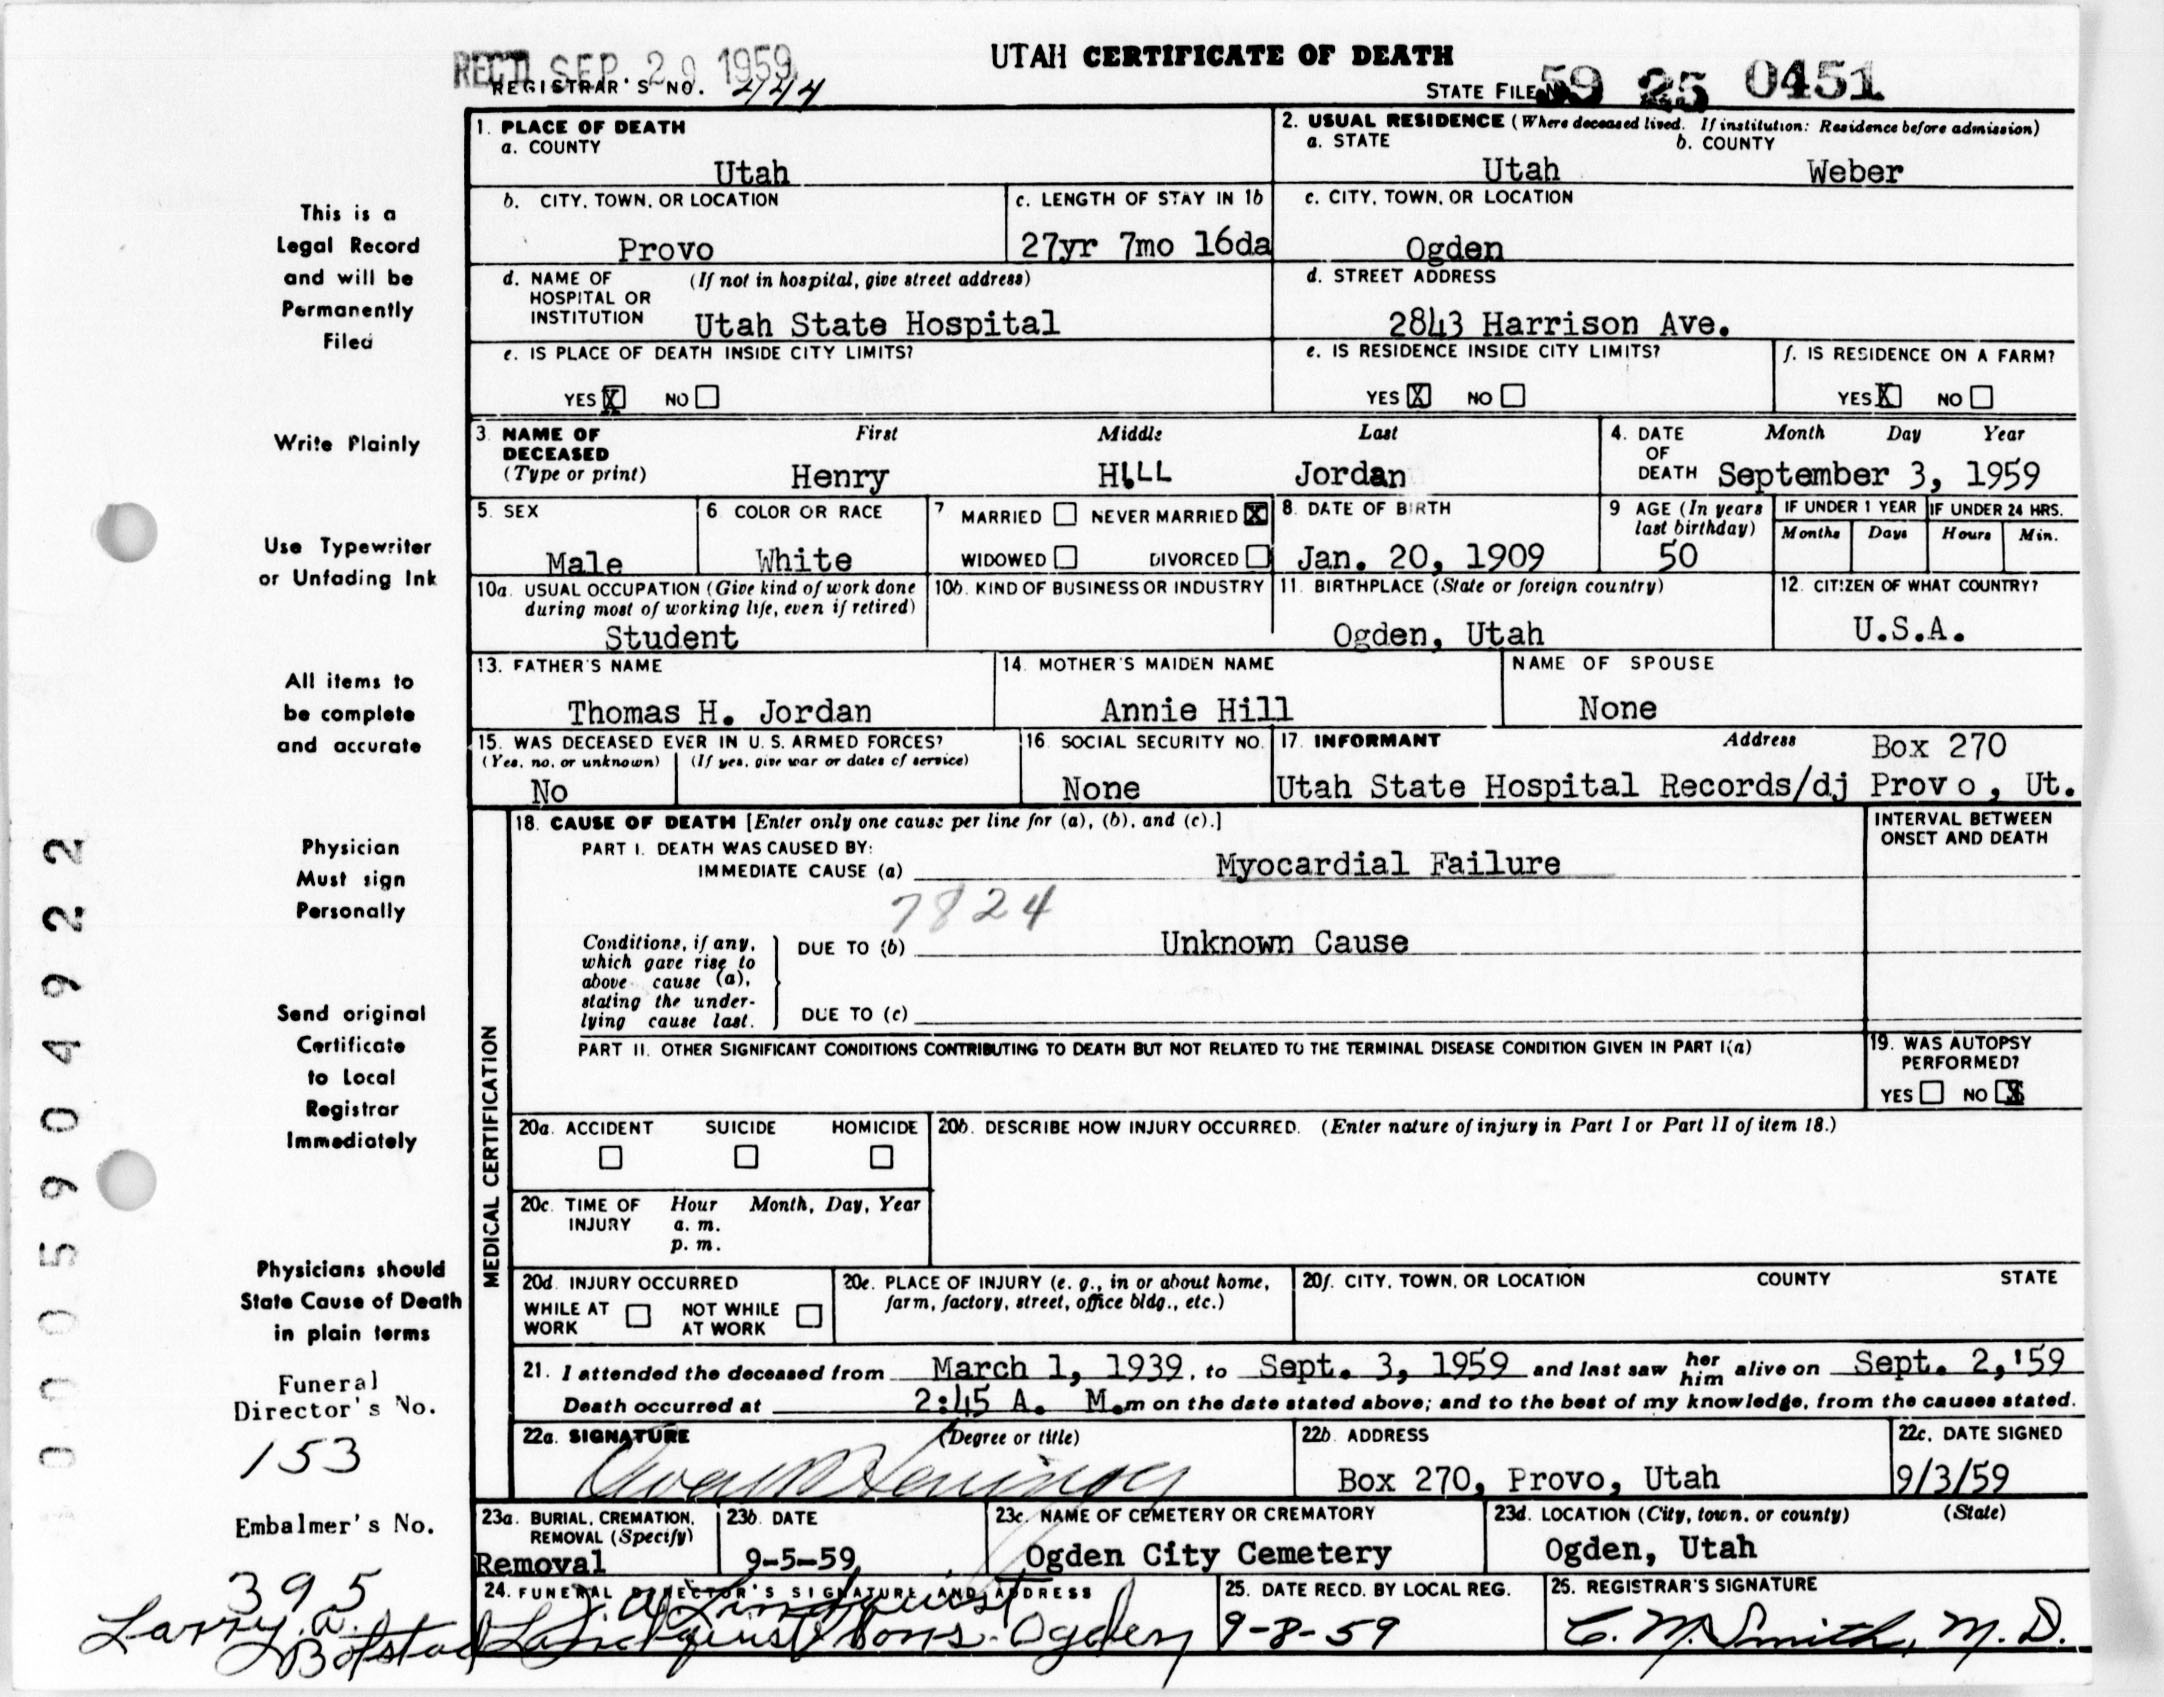 REC'D SEP 29 1959
UTAH CERTIFICATE OF DEATH
REGISTRAR'S NO. 444
STATE FILE NO. 59 25 0451
1. PLACE OF DEATH
a. COUNTY
Utah
2. USUAL RESIDENCE (Where deceased lived. If institution: Residence before admission)
a. STATE b. COUNTY
Utah Weber
b. CITY, TOWN, OR LOCATION
Provo
c. LENGTH OF STAY IN 1b
27yr 7mo 16da
c. CITY, TOWN, OR LOCATION
Ogden
d. NAME OF HOSPITAL OR INSTITUTION (If not in hospital, give street address)
Utah State Hospital
d. STREET ADDRESS
2843 Harrison Ave.
e. IS PLACE OF DEATH INSIDE CITY LIMITS?
YES X NO
e. IS RESIDENCE INSIDE CITY LIMITS?
YES X NO
f. IS RESIDENCE ON A FARM?
YES X NO
3. NAME OF DECEASED (Type or print)
First Middle Last
Henry HILL Jordan
4. DATE OF DEATH Month Day Year
September 3, 1959
5. SEX
Male
6. COLOR OR RACE
White
7 MARRIED NEVER MARRIED X
WIDOWED DIVORCED
8. DATE OF BIRTH
Jan. 20, 1909
9 AGE (In years last birthday)
50
IF UNDER 1 YEAR
Months Days
IF UNDER 24 HRS.
Hours Min.
10a. USUAL OCCUPATION (Give kind of work done during most of working life, even if retired)
Student
10b. KIND OF BUSINESS OR INDUSTRY
11. BIRTHPLACE (State or foreign country)
Ogden, Utah
12. CITIZEN OF WHAT COUNTRY?
U.S.A.
13. FATHER'S NAME
Thomas H. Jordan
14. MOTHER'S MAIDEN NAME
Annie Hill
NAME OF SPOUSE
None
15. WAS DECEASED EVER IN U.S. ARMED FORCES?
(Yes, no, or unknown) (If yes, give war or dates of service)
No
16. SOCIAL SECURITY NO.
None
17. INFORMANT Address
Box 270
Utah State Hospital Records/dj Provo, Ut.
MEDICAL CERTIFICATION
18. CAUSE OF DEATH [Enter only one cause per line for (a), (b), and (c).]
PART I. DEATH WAS CAUSED BY:
IMMEDIATE CAUSE (a) Myocardial Failure
7824
Conditions, if any, which gave rise to above cause (a), stating the underlying cause last.
DUE TO (b) Unknown Cause
DUE TO (c)
INTERVAL BETWEEN ONSET AND DEATH
PART II. OTHER SIGNIFICANT CONDITIONS CONTRIBUTING TO DEATH BUT NOT RELATED TO THE TERMINAL DISEASE CONDITION GIVEN IN PART I(a)
19. WAS AUTOPSY PERFORMED?
YES NO X
20a. ACCIDENT SUICIDE HOMICIDE
20b. DESCRIBE HOW INJURY OCCURRED. (Enter nature of injury in Part I or Part II of item 18.)
20c. TIME OF INJURY Hour Month, Day, Year
a. m.
p. m.
20d. INJURY OCCURRED
WHILE AT WORK NOT WHILE AT WORK
20e. PLACE OF INJURY (e. g., in or about home, farm, factory, street, office bldg., etc.)
20f. CITY, TOWN, OR LOCATION COUNTY STATE
21. I attended the deceased from March 1, 1939, to Sept. 3, 1959 and last saw her him alive on Sept. 2, '59
Death occurred at 2:45 A. M.m on the date stated above; and to the best of my knowledge, from the causes stated.
22a. SIGNATURE (Degree or title)
22b. ADDRESS
Box 270, Provo, Utah
22c. DATE SIGNED
9/3/59
23a. BURIAL, CREMATION, REMOVAL (Specify)
Removal
23b. DATE
9-5-59
23c. NAME OF CEMETERY OR CREMATORY
Ogden City Cemetery
23d. LOCATION (City, town, or county) (State)
Ogden, Utah
24. FUNERAL DIRECTOR'S SIGNATURE AND ADDRESS
Lindquist
Lindquist & Sons - Ogden
25. DATE RECD. BY LOCAL REG.
9-8-59
25. REGISTRAR'S SIGNATURE
C. M. Smith, M. D.
This is a
Legal Record
and will be
Permanently
Filed
Write Plainly
Use Typewriter
or Unfading Ink
All items to
be complete
and accurate
Physician
Must sign
Personally
Send original
Certificate
to Local
Registrar
Immediately
Physicians should
State Cause of Death
in plain terms
Funeral
Director's No.
153
Embalmer's No.
395
Larry A.
Botstad
0005904922